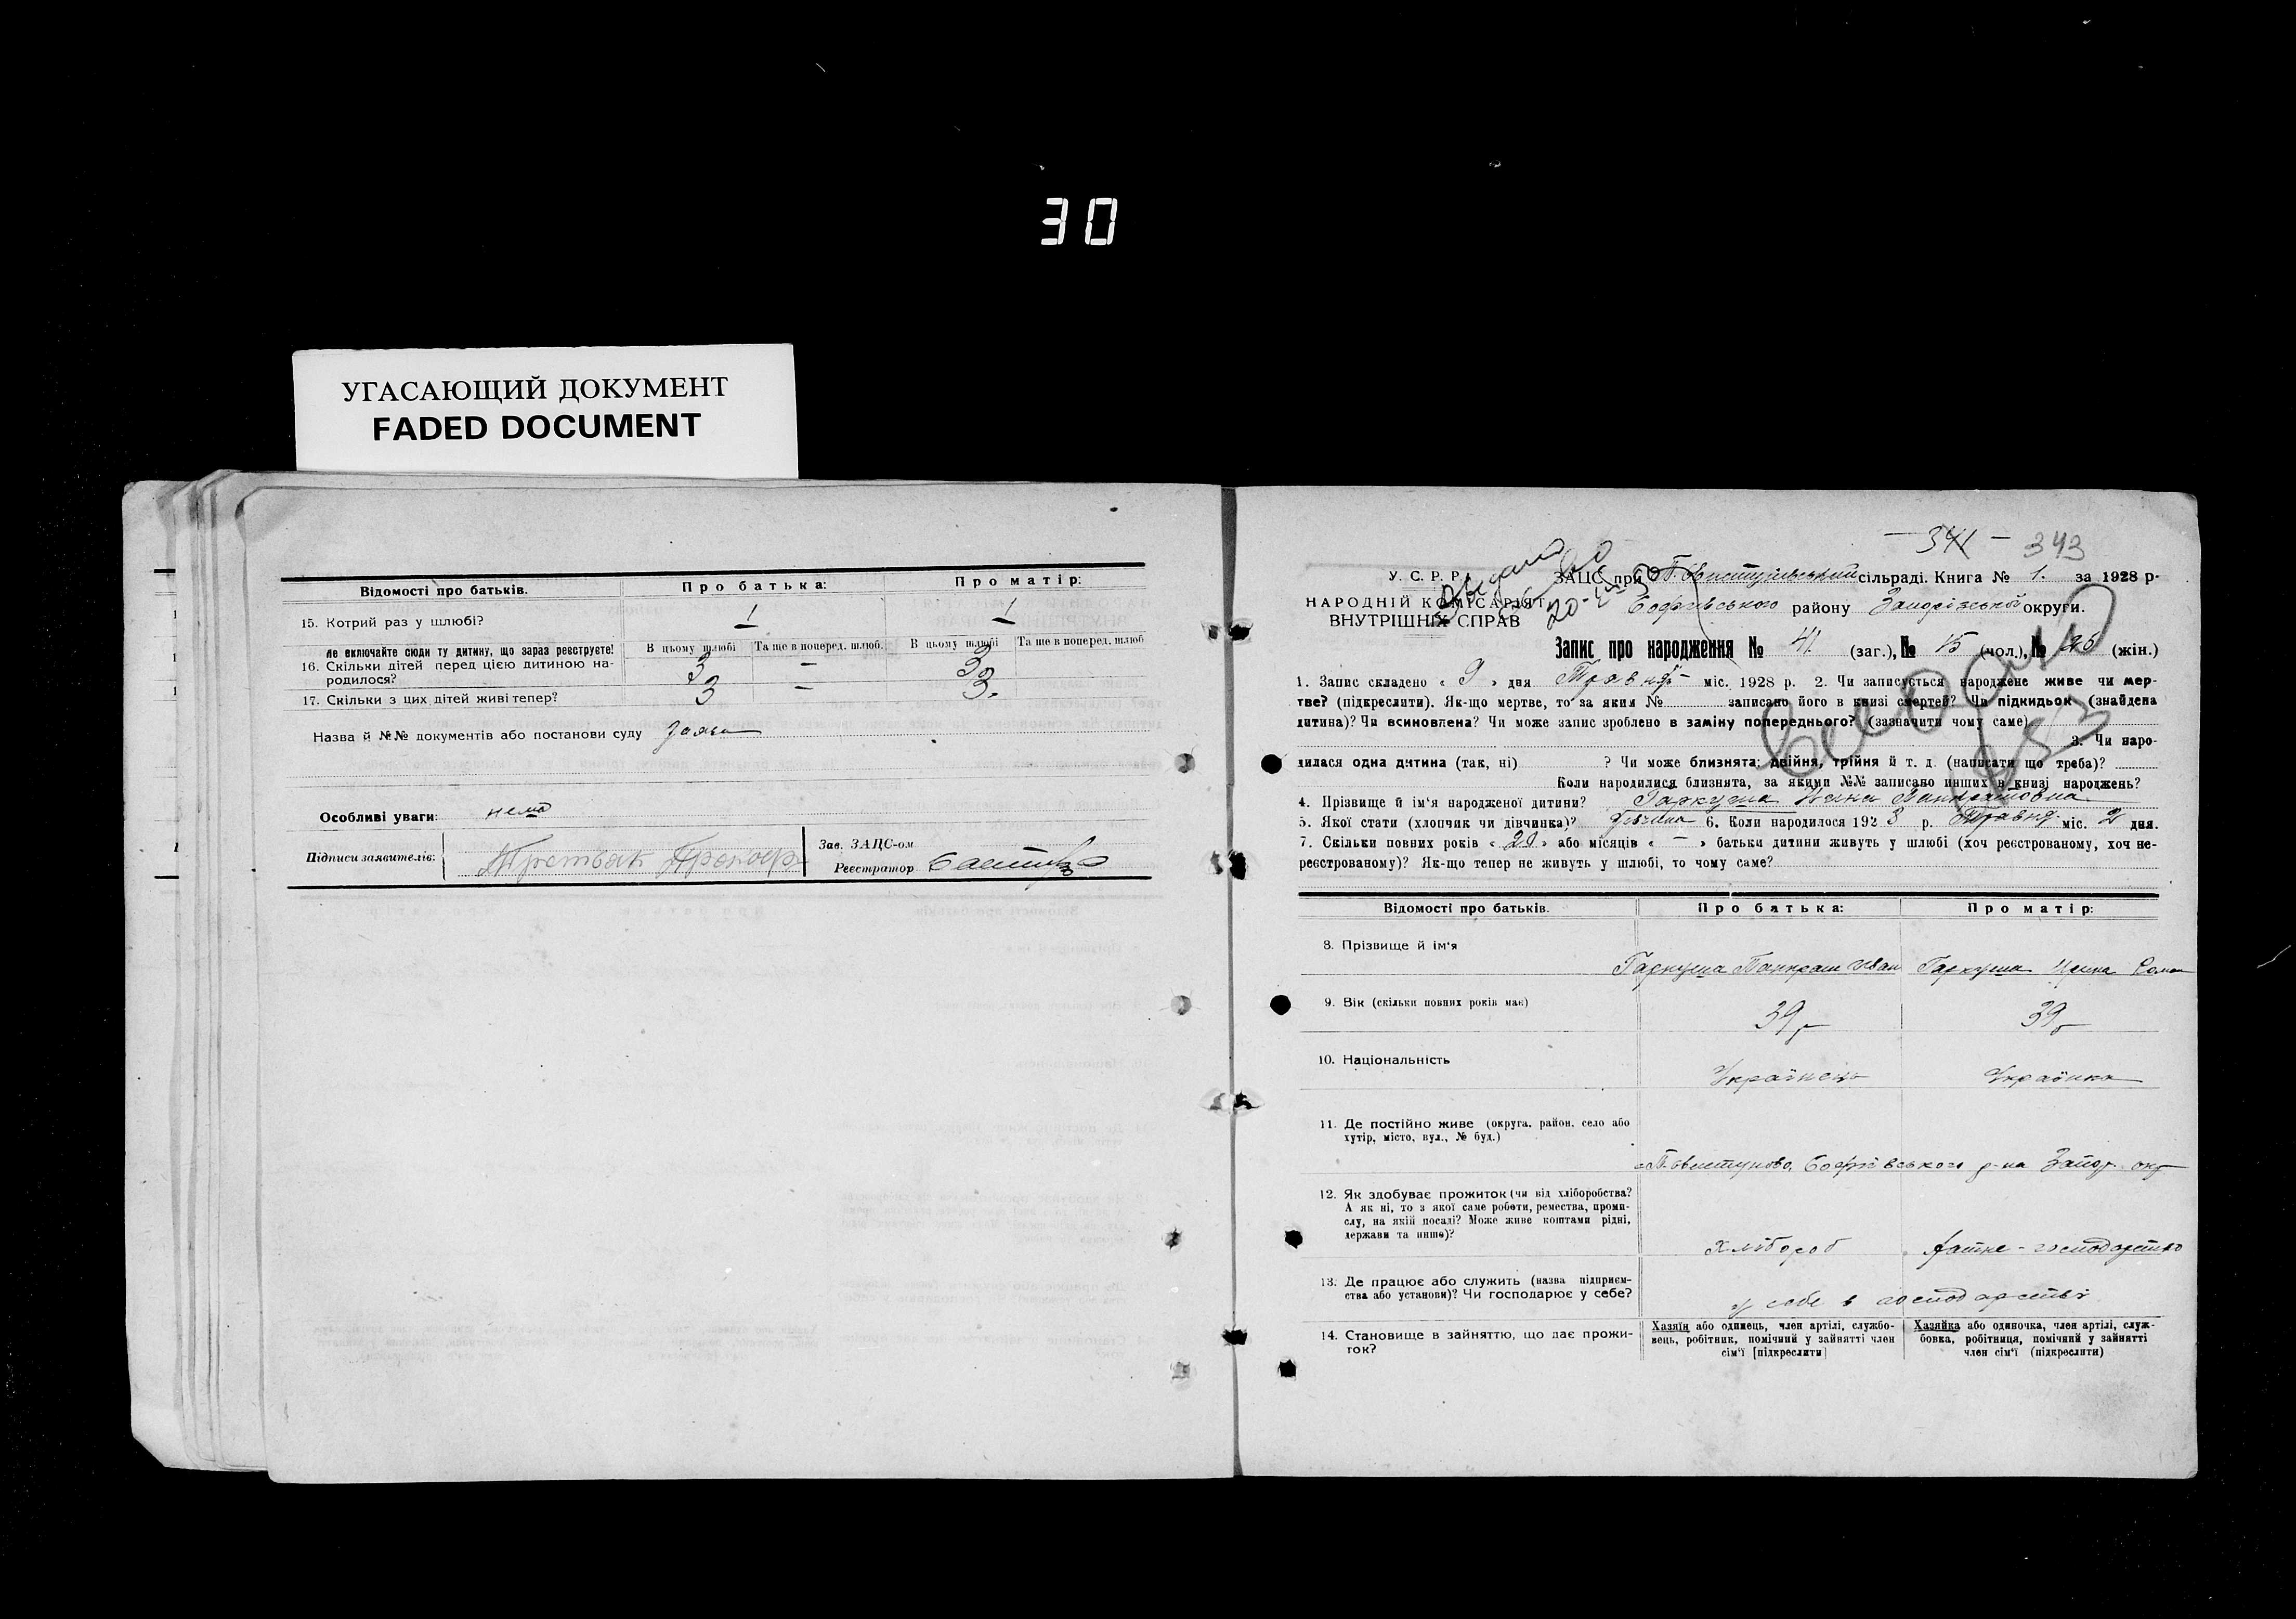 30
УГАСАЮЩИЙ ДОКУМЕНТ
FADED DOCUMENT
Відомості про батьків. Про батька: Про матір:
15. Котрий раз у шлюбі? 1 1
не включайте сюди ту дитину, що зараз реєструєте!
В цьому шлюбі Та ще в поперед. шлюб. В цьому шлюбі Та ще в поперед. шлюб
16. Скільки дітей перед цією дитиною на-
родилося? 3 — 3
17. Скільки з цих дітей живі тепер? 3 — 3.
Назва й №№ документів або постанови суду заява
Особливі уваги: нема
Підписи заявителів: Третьяк Прокоф
Зав. ЗАЦС-ом
Реєстратор
— 341 — 343
У. С. Р. Р.
НАРОДНІЙ КОМІСАРІЯТ
ВНУТРІШНІХ СПРАВ
ЗАЦС при П. Свистунівський сільраді. Книга № 1. за 1928 р-
Софіївського району Запорізської округи.
Запис про народження № 41 (заг.), № 15 (чол.), № 26 (жін.)
1. Запис складено « 9 » дня Травня міс. 1928 р. 2. Чи записується народжене живе чи мер-
тве? (підкреслити). Як-що мертве, то за яким № записано його в книзі смертей? Чи підкидьок (знайдена
дитина)? Чи всиновлена? Чи може запис зроблено в заміну попереднього? (зазначити чому саме)
3. Чи наро-
дилася одна дитина (так, ні) ? Чи може близнята: двійня, трійня й т. д. (написати що треба)?
Коли народилися близнята, за якими №№ записано инших в книзі народжень?
4. Прізвище й ім'я народженої дитини? Гаркуша Панкратовна
5. Якої стати (хлопчик чи дівчинка)? Дівчина 6. Коли народилося 192 8 р. Травня міс. 2 дня.
7. Скільки повних років « 20 » або місяців « — » батьки дитини живуть у шлюбі (хоч реєстрованому, хоч не-
реєстрованому)? Як-що тепер не живуть у шлюбі, то чому саме?
Відомості про батьків. Про батька: Про матір:
8. Прізвище й ім'я Гаркуша Панкрат Иван Гаркуша
9. Вік (скільки повних років має) 39 р 39 р
10. Національність Українець Українка
11. Де постійно живе (округа, район, село або
хутір, місто, вул., № буд.)
П. Свистуново Софіївського р-на Запор. окр
12. Як здобуває прожиток (чи від хліборобства?
А як ні, то з якої саме роботи, ремества, проми-
слу, на якій посаді? Може живе коштами рідні,
держави та инше)?
Хлібороб хатнє-господарство
13. Де працює або служить (назва підприєм-
ства або установи)? Чи господарює у себе?
у себе в господарстві
14. Становище в зайняттю, що дає прожи-
ток?
Хазяїн або одинець, член артілі, службо-
вець, робітник, помічний у зайнятті член
сім'ї [підкреслити]
Хазяйка або одиночка, член артілі, служ-
бовка, робітниця, помічний у зайнятті
член сім'ї (підкреслити)